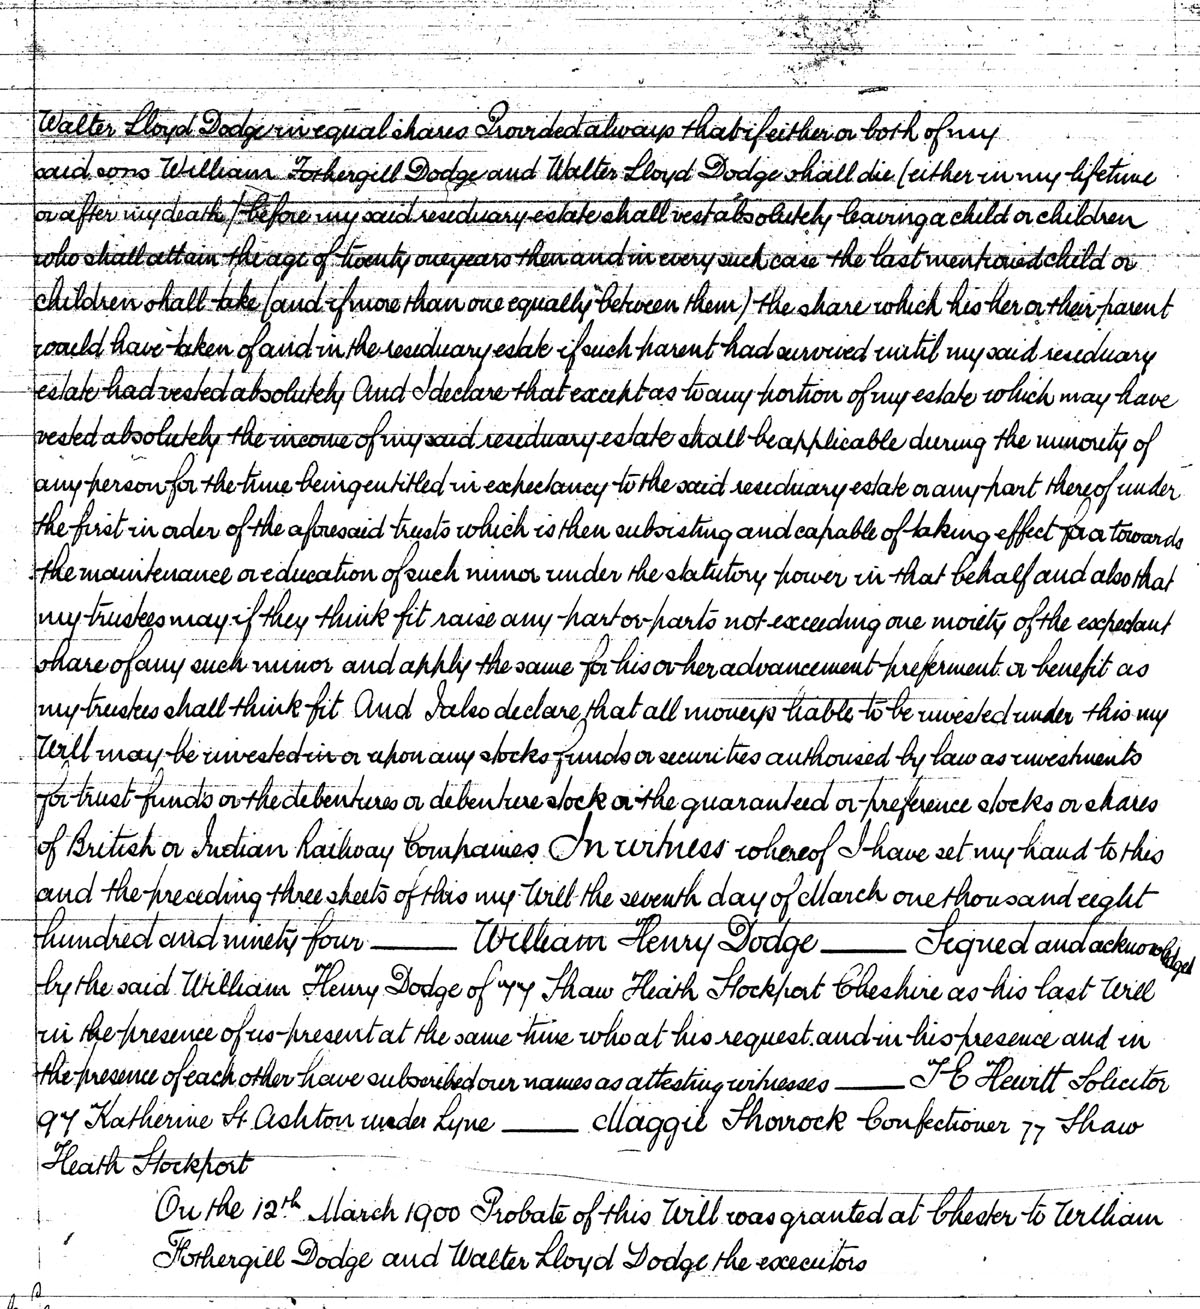 Walter Lloyd Dodge in equal shares Provided always that if either or both of my
said sons William Fothergill Dodge and Walter Lloyd Dodge shall die (either in my lifetime
or after my death) before my said reseduary estate shall vest absolutely leaving a child or children
who shall attain the age of twenty one years then and in every such case the last mentioned child or
children shall take (and if more than one equally between them) the share which his her or their parent
would have taken of and in the reseduary estate if such parent had survived until my said reseduary
estate had vested absolutely And I declare that except as to any portion of my estate which may have
vested absolutely the income of my said reseduary estate shall be applicable during the minority of
any person for the time being entitled in expectancy to the said reseduary estate or any part thereof under
the first in order of the aforesaid trusts which is then subsisting and capable of taking effect for or towards
the maintenance or education of such minor under the statutory power in that behalf and also that
my trustees may if they think fit raise any part or parts not exceeding one moiety of the expectant
share of any such minor and apply the same for his or her advancement preferment or benefit as
my trustees shall think fit And I also declare that all moneys liable to be invested under this my
Will may be invested in or upon any stocks funds or securities authorised by law as investments
for trust funds or the debentures or debenture stock or the guaranteed or preference stocks or shares
of British or Indian Railway Companies In witness whereof I have set my hand to this
and the preceding three sheets of this my Will the seventh day of March one thousand eight
hundred and ninety four —— William Henry Dodge —— Signed and acknowledged
by the said William Henry Dodge of 77 Shaw Heath Stockport Cheshire as his last Will
in the presence of us present at the same time who at his request and in his presence and in
the presence of each other have subscribed our names as attesting witnesses —— T E Hewitt Solicitor
97 Katherine St Ashton under Lyne —— Maggie Shorrock Confectioner 77 Shaw
Heath Stockport
On the 12th March 1900 Probate of this Will was granted at Chester to William
Fothergill Dodge and Walter Lloyd Dodge the executors